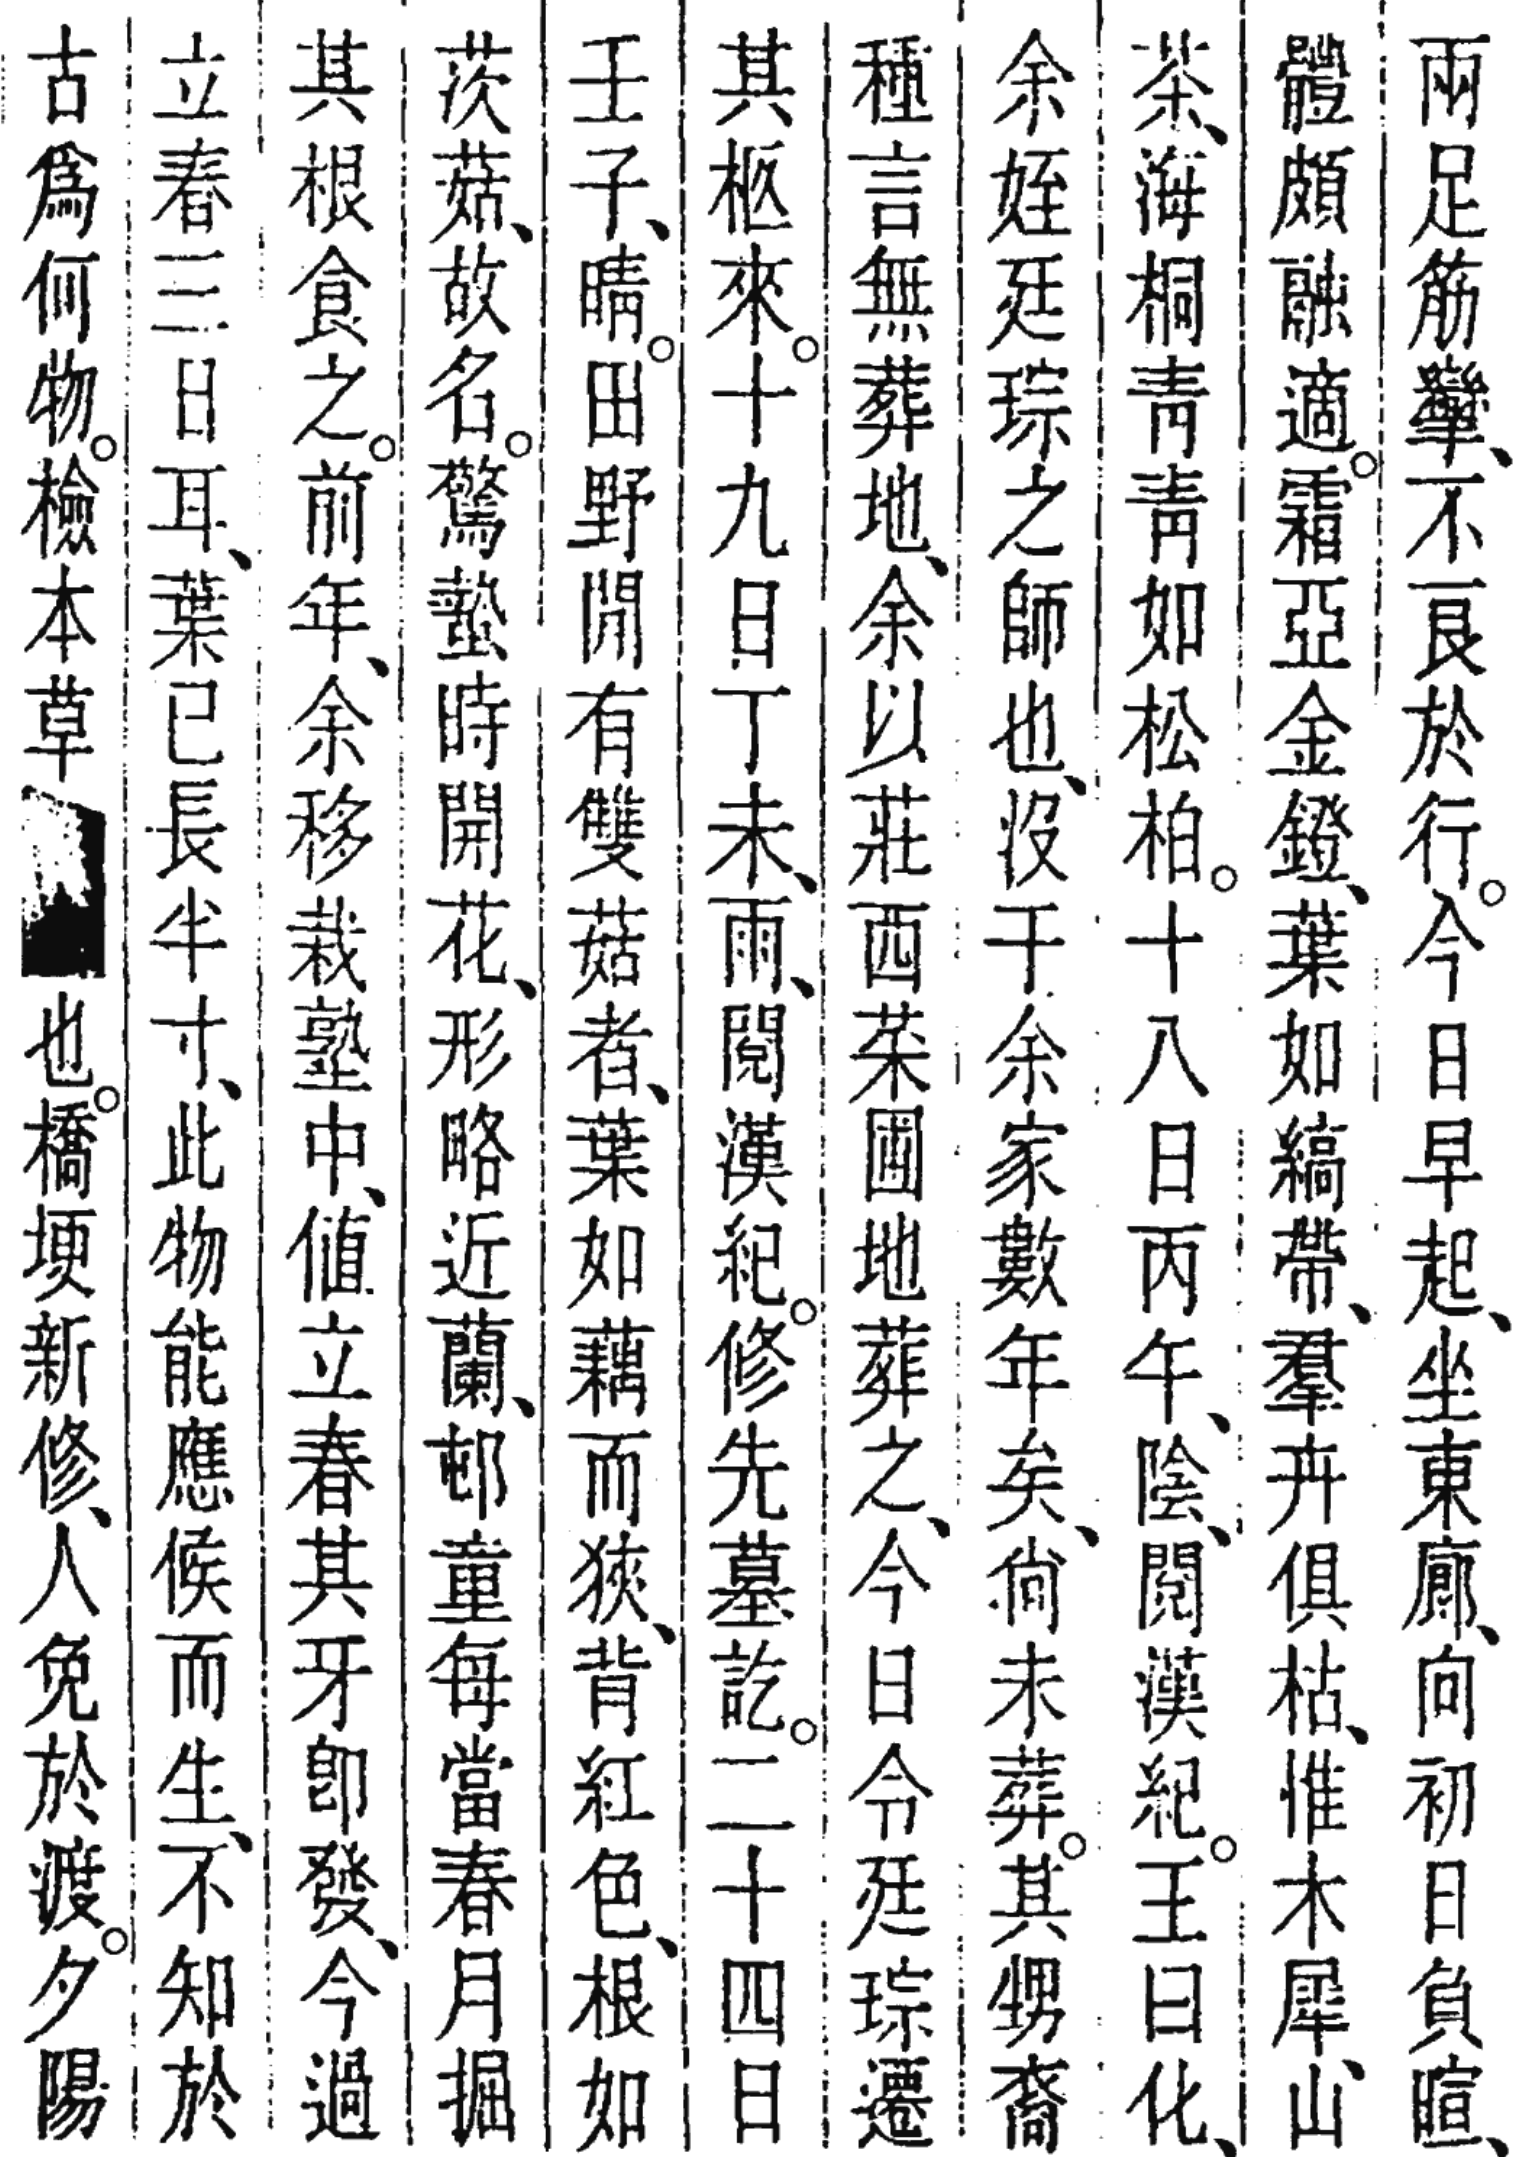 兩足筋攣、不艮於行。今日早起、坐東廊、向初日負暄、
體頗融適。霜亞金鐙、葉如縞帶、羣卉俱枯、惟木犀、山
茶、海桐靑靑如松柏。十八日丙午、陰、閱漢紀。王曰化、
余姪廷琮之師也、沒于余家數年矣、尙未葬。其甥裔
種言無葬地、余以莊西菜圃地葬之、今日令廷琮遷
其柩來。十九日丁未、雨、閱漢紀。修先墓訖。二十四日
壬子、晴。田野閒有雙菇者、葉如藕而狹、背紅色、根如
茨菇、故名。驚蟄時開花、形略近蘭、邨童每當春月掘
其根食之。前年、余移栽塾中、値立春其牙卽發、今過
立春三日耳、葉已長半寸、此物能應候而生、不知於
古爲何物。檢本草也。橋埂新修、人免於渡。夕陽